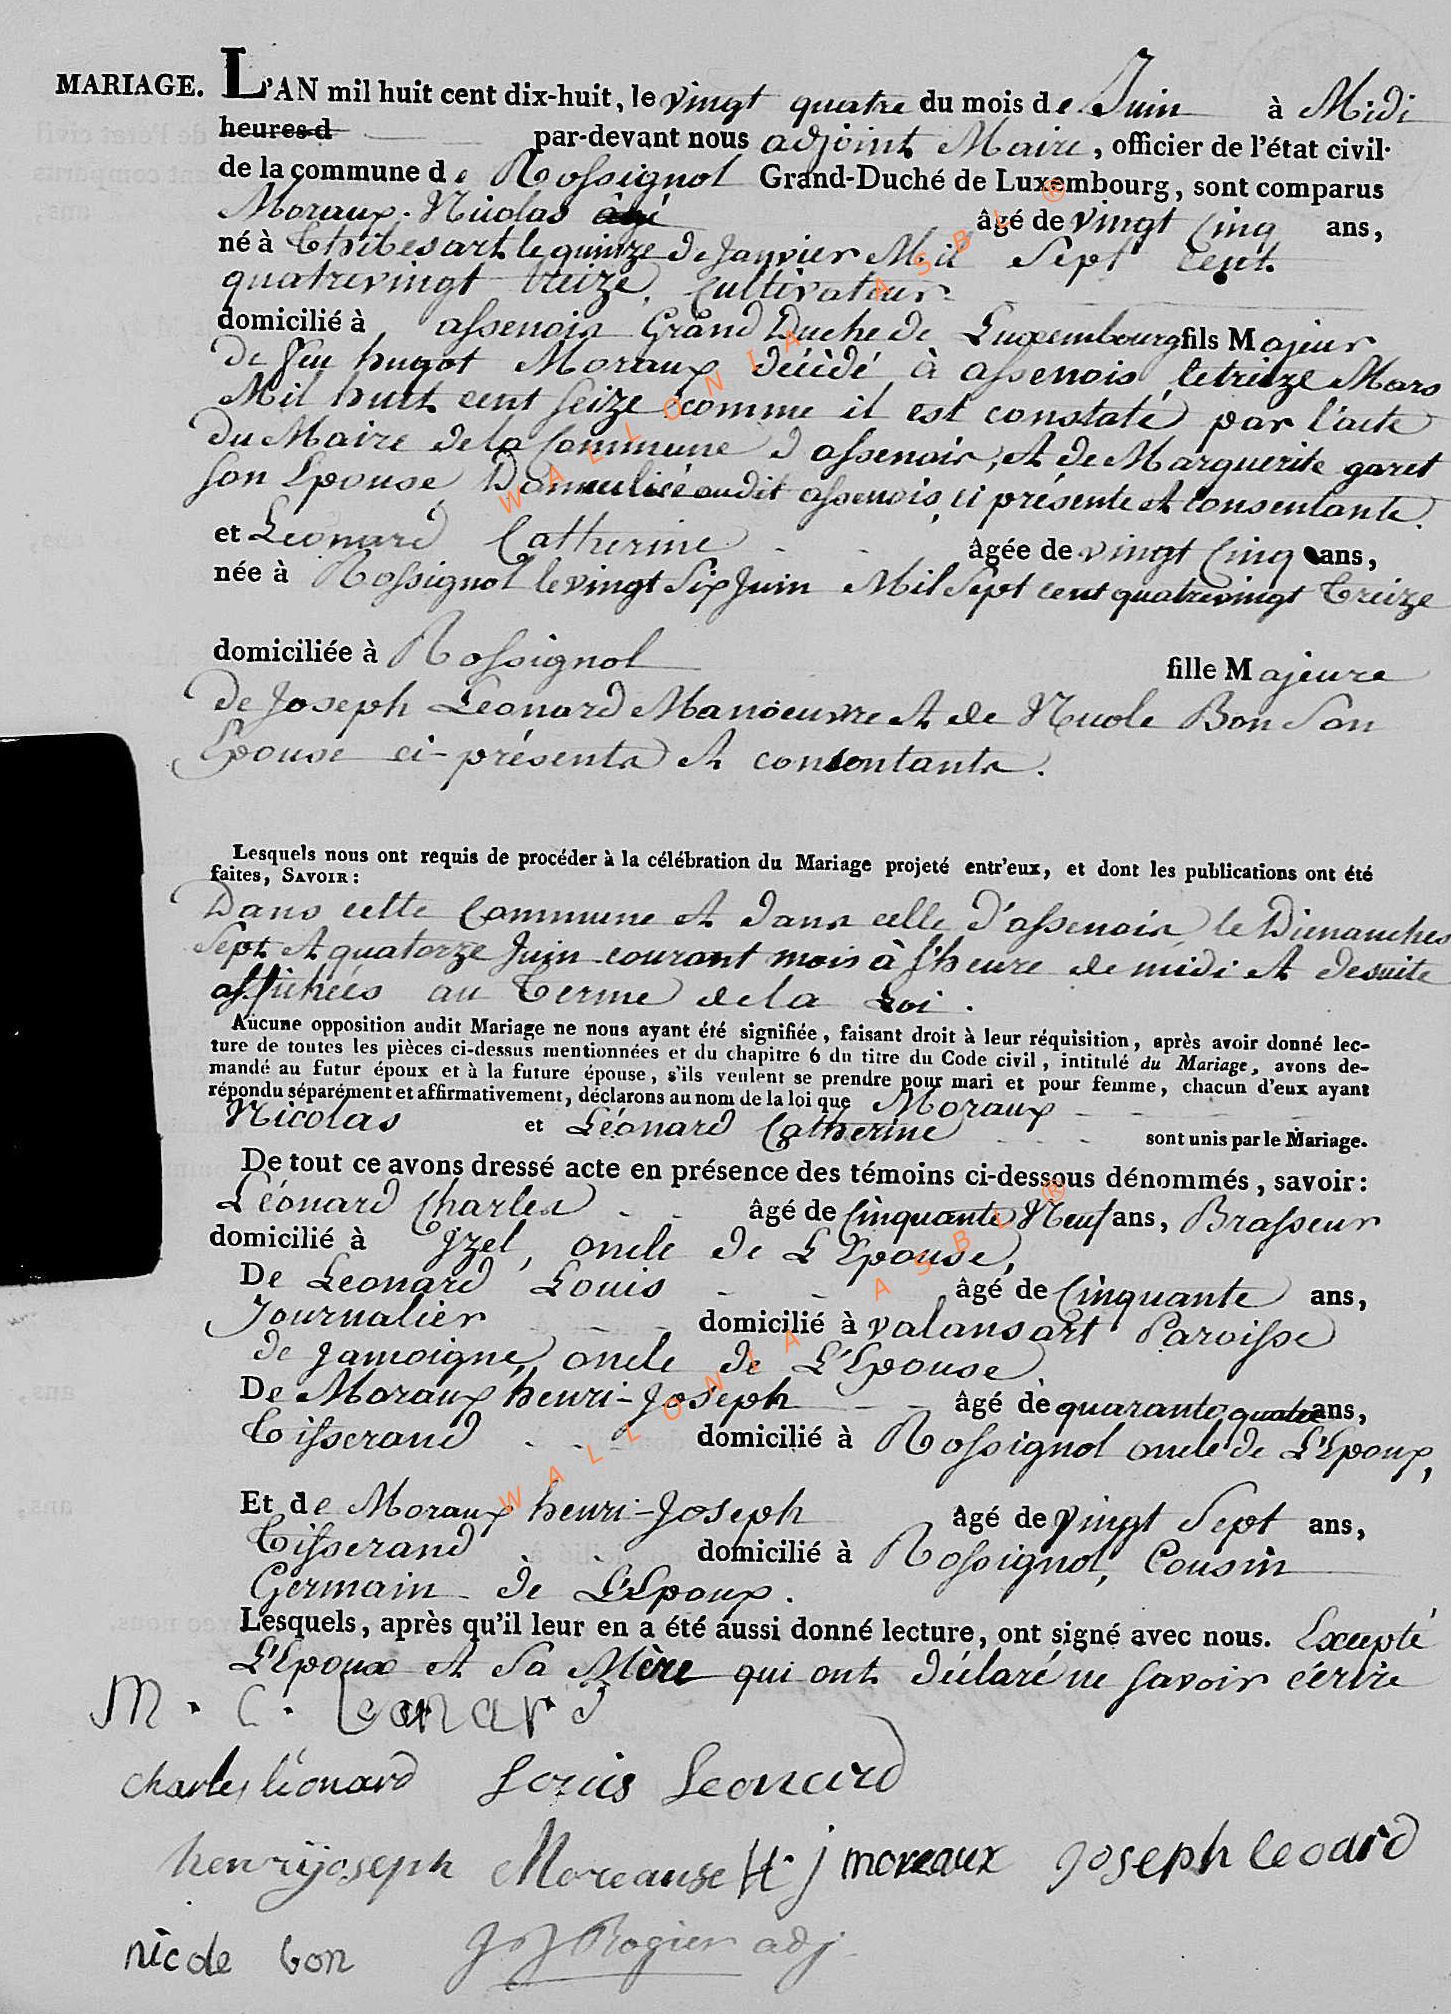 MARIAGE. L'AN mil huit cent dix-huit, le vingt quatre du mois de Juin à Midi
heures d par-devant nous adjoint Maire, officier de l'état civil
de la commune de Rossignol Grand-Duché de Luxembourg, sont comparus
Moraux Nicolas âgé de vingt Cinq ans,
né à Thibesart le quinze de Janvier Mil Sept Cent
quatrevingt treize, Cultivateur
domicilié à assenois Grand Duche de Luxembourg fils Majeur
de feu hugot Moraux décédé à assenois le treize Mars
Mil huit cent Seize comme il est constaté par l'acte
du Maire de la Commune d'assenois, et de Marguerite garet
Son Epouse Domiciliée audit assenois, ci présente et consentante.
et Leonard Catherine âgée de vingt Cinq ans,
née à Rossignol le vingt Six Juin Mil Sept cent quatrevingt Treize
domiciliée à Rossignol fille Majeure
de Joseph Leonard Manoeuvre et de Nicole Bon Son
Epouse ci-présents et consentants.
Lesquels nous ont requis de procéder à la célébration du Mariage projeté entr'eux, et dont les publications ont été
faites, SAVOIR :
Dans cette Commune et dans celle d'assenois le Dimanches
Sept et quatorze Juin courant mois à l'heure de midi et desuite
affichées au Terme de la Loi.
Aucune opposition audit Mariage ne nous ayant été signifiée, faisant droit à leur réquisition, après avoir donné lec-
ture de toutes les pièces ci-dessus mentionnées et du chapitre 6 du titre du Code civil, intitulé du Mariage, avons de-
mandé au futur époux et à la future épouse, s'ils veulent se prendre pour mari et pour femme, chacun d'eux ayant
répondu séparément et affirmativement, déclarons au nom de la loi que Moraux
Nicolas et Léonard Catherine sont unis par le Mariage.
De tout ce avons dressé acte en présence des témoins ci-dessous dénommés, savoir :
Léonard Charles âgé de Cinquante Neuf ans, Brasseur
domicilié à Izel, oncle de L'Epouse,
De Leonard Louis âgé de Cinquante ans,
Journalier domicilié à valansart Paroisse
de Jamoigne, oncle de L'Epouse
De Moraux henri-Joseph âgé de quarante quatre ans,
Tisserand domicilié à Rossignol oncle de L'Epoux,
Et de Moraux henri-Joseph âgé de Vingt Sept ans,
Tisserand domicilié à Rossignol, Cousin
Germain de L'Epoux.
Lesquels, après qu'il leur en a été aussi donné lecture, ont signé avec nous. Excepté
L'Epoux et Sa Mère qui ont déclaré ne savoir écrire
M. C. Leonard
charles léonard Louis Leonard
henrÿ joseph Moreause H j moreaux joseph leoard
nicole bon J J Rogier adj.
WALLONIA ASBL ®
WALLONIA ASBL ®